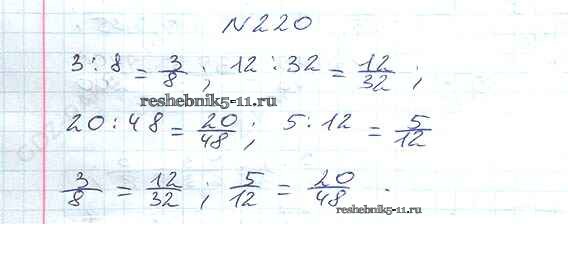 N220
3 : 8 = 3/8 ; 12 : 32 = 12/32 ;
reshebnik5-11.ru
20 : 48 = 20/48 ; 5 : 12 = 5/12
3/8 = 12/32 ; 5/12 = 20/48 .
reshebnik5-11.ru